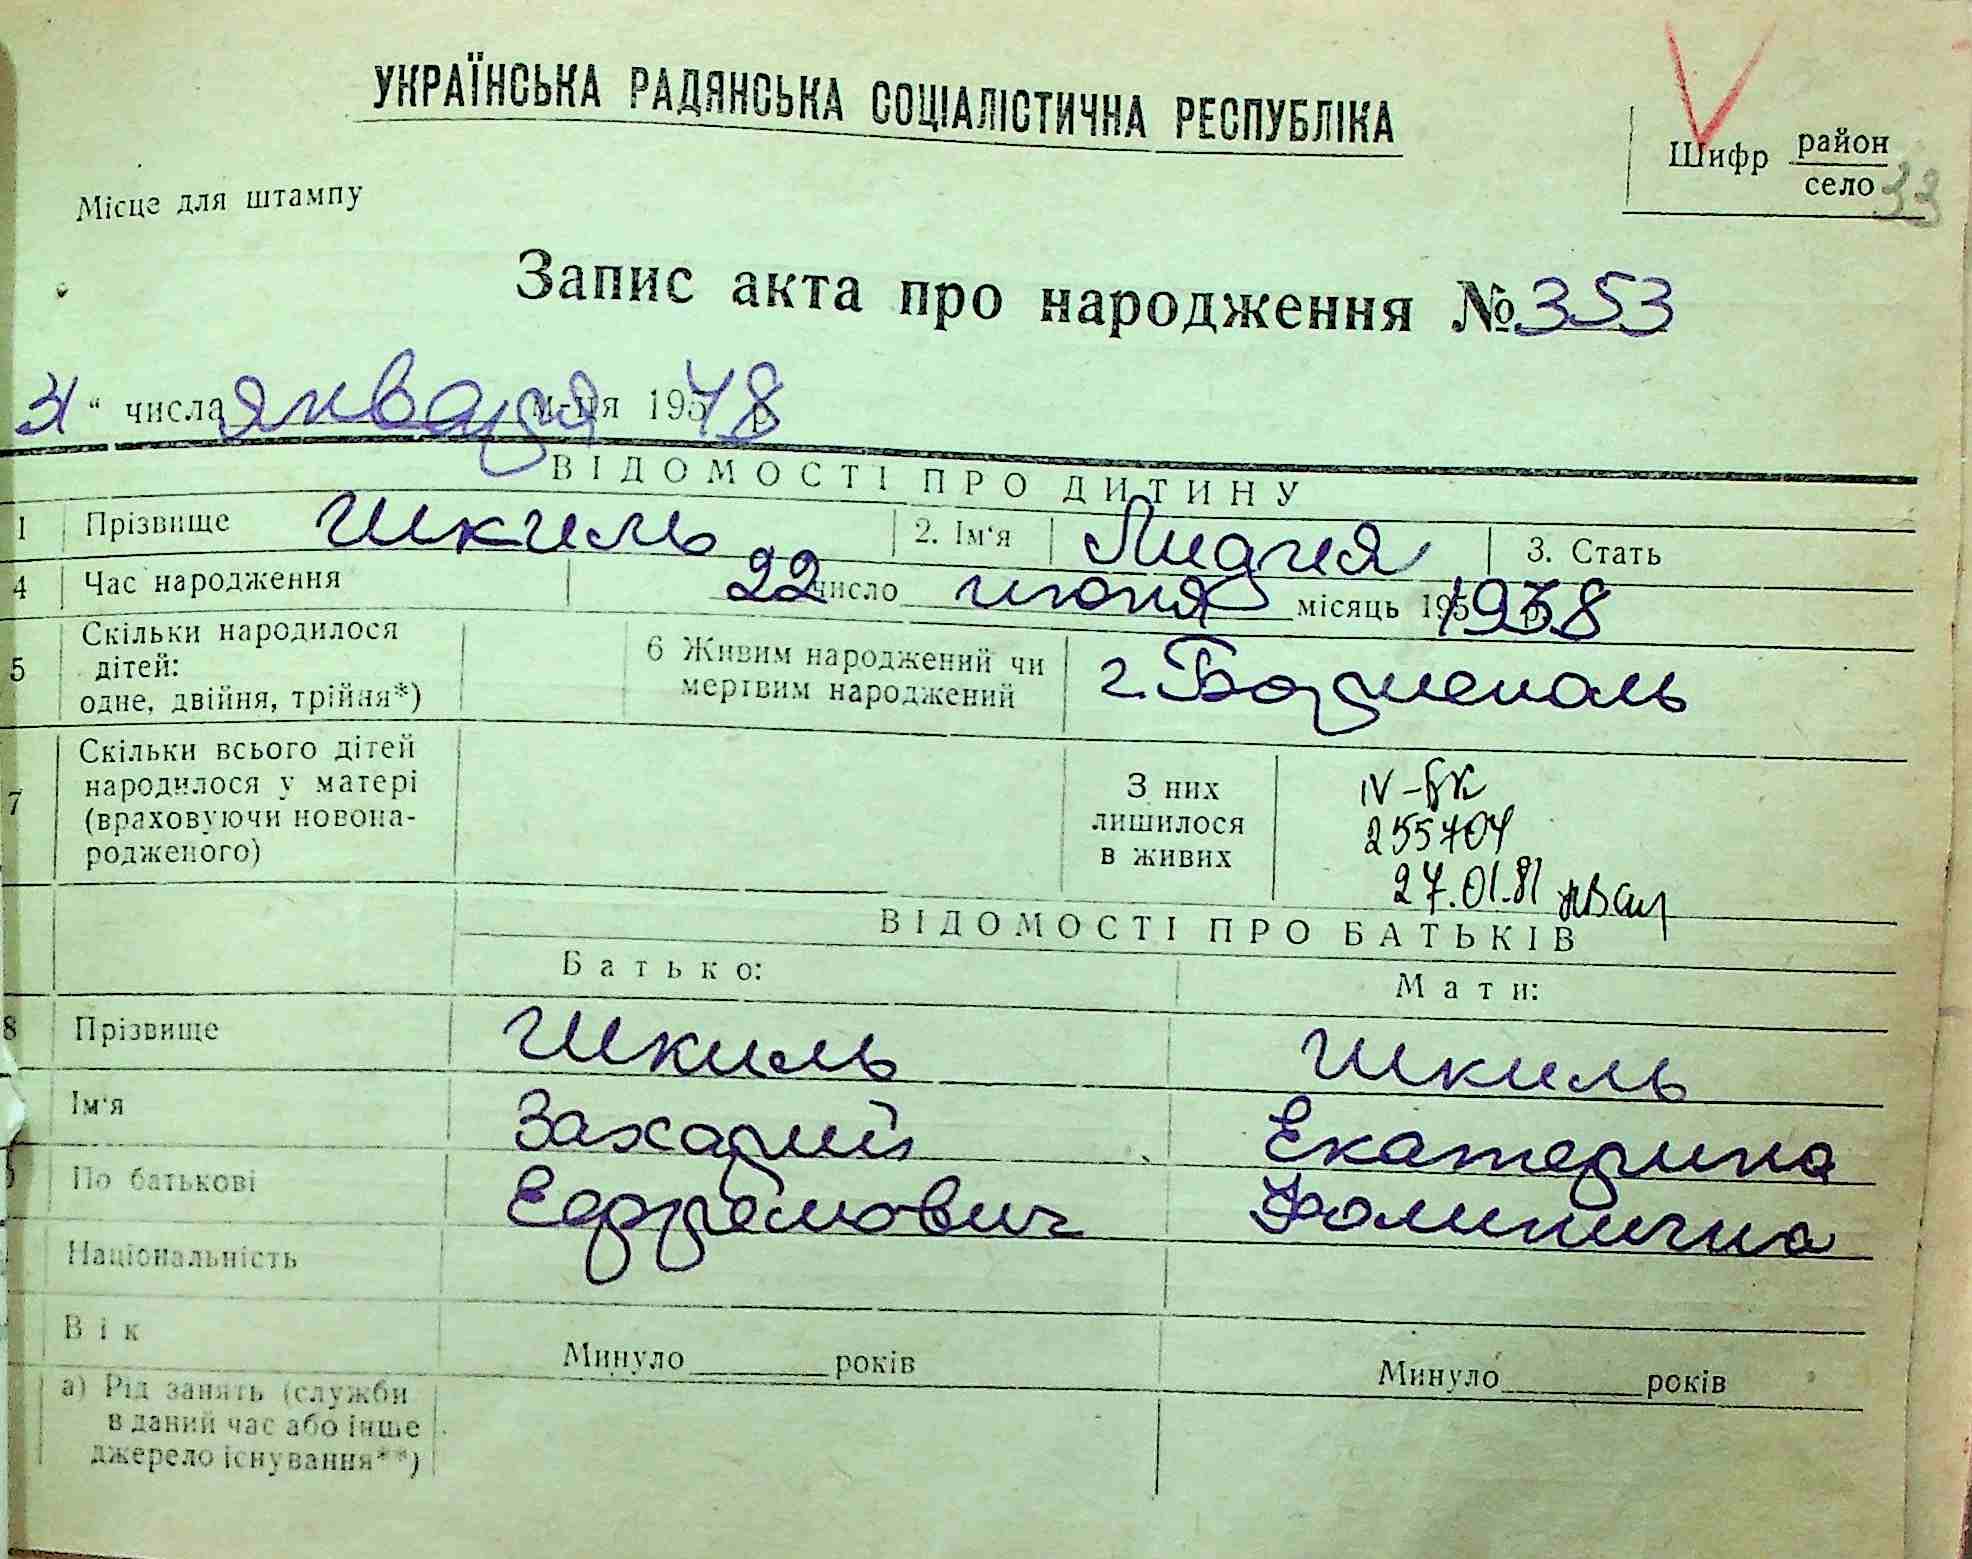 УКРАЇНСЬКА РАДЯНСЬКА СОЦІАЛІСТИЧНА РЕСПУБЛІКА
Шифр район
село 33
Місце для штампу
Запис акта про народження № 353
31 " числа января м-ця 195 78 р
ВІДОМОСТІ ПРО ДИТИНУ
1 Прізвище Шкиль 2. Ім'я Лидия 3. Стать
4 Час народження 22 число июня місяць 195 1938
5 Скільки народилося дітей: одне, двійня, трійня*)
6 Живим народжений чи мертвим народжений г. Борисполь
7 Скільки всього дітей народилося у матері (враховуючи новонародженого)
З них лишилося в живих
IV-БК
255704
27.01.81
ВІДОМОСТІ ПРО БАТЬКІВ
Батько: Мати:
8 Прізвище Шкиль Шкиль
Ім'я Захарий Екатерина
По батькові Ефремович Фоминична
Національність
Вік Минуло ______ років Минуло ______ років
а) Рід занять (служби
в даний час або інше
джерело існування**)